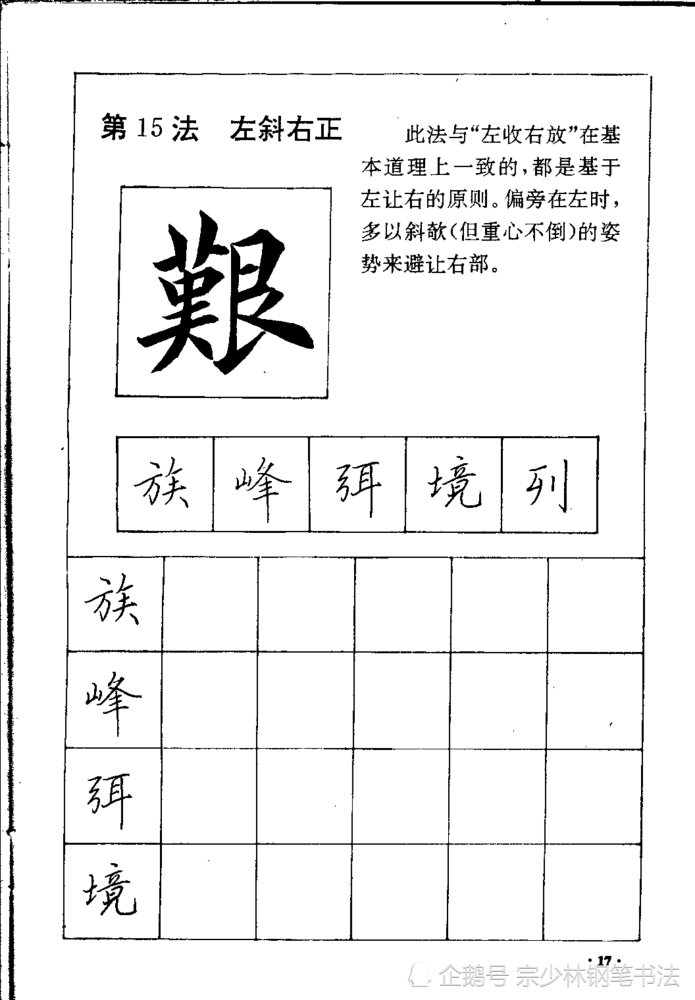 第15法 左斜右正
此法与“左收右放”在基
本道理上一致的，都是基于
左让右的原则。偏旁在左时，
多以斜欹(但重心不倒)的姿
势来避让右部。
艱
族 峰 弭 境 列
族
峰
弭
境
·17·
企鹅号 宗少林钢笔书法